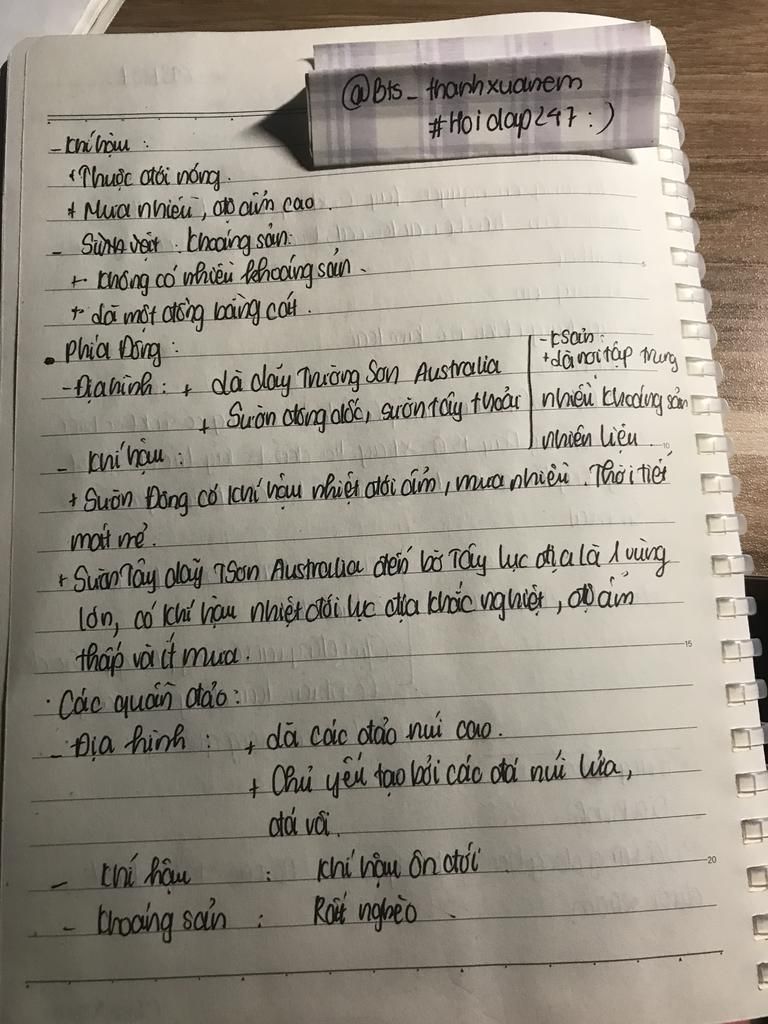 @Bts_thanhxuanem
#Hoidap247 :)
- Khí hậu :
+ Thuộc đới nóng.
+ Mưa nhiều, độ ẩm cao.
- Sinh vật : Khoáng sản:
+ Không có nhiều khoáng sản.
+ Là một đồng bằng cát.
• Phía Đông :
- Địa hình : + Là dãy Trường Sơn Australia
+ Sườn đông dốc, sườn tây thoải
- K sản :
+ Là nơi tập trung
nhiều khoáng sản
nhiên liệu.
- Khí hậu :
+ Sườn Đông có khí hậu nhiệt đới ẩm, mưa nhiều. Thời tiết
mát mẻ.
+ Sườn Tây dãy TSơn Australia đến bờ Tây lục địa là 1 vùng
lớn, có khí hậu nhiệt đới lục địa khắc nghiệt, độ ẩm
thấp và ít mưa.
• Các quần đảo :
- Địa hình : + Là các đảo núi cao.
+ Chủ yếu tạo bởi các đá núi lửa,
đá vôi.
- Khí hậu : Khí hậu ôn đới
- Khoáng sản : Rất nghèo.
5
10
15
20